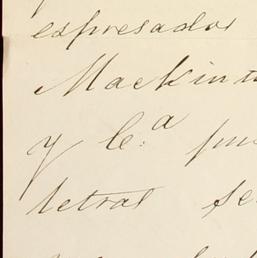 expresados
Mackint
y C.ª
letras se